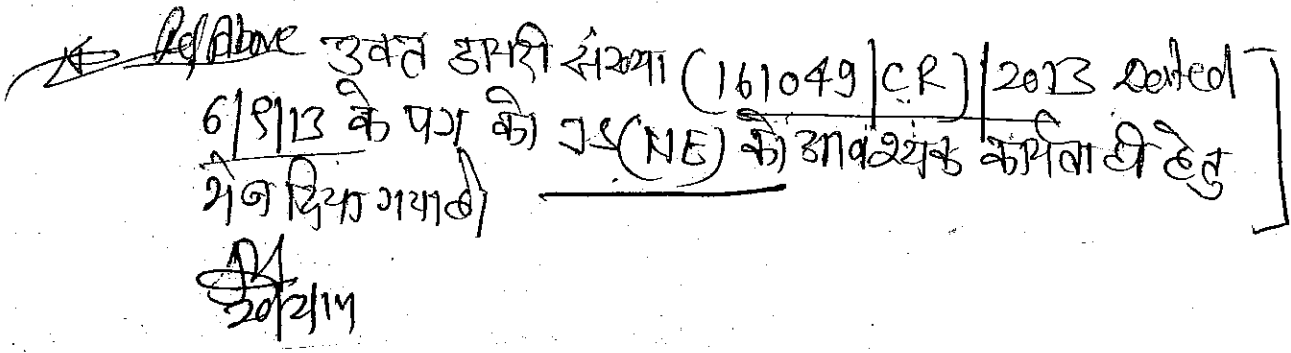 Ref Above उक्त डायरी संख्या (161049|CR)|2013 Dated
6/9/13 के पत्र को JS(NE) को आवश्यक कार्यवाही हेतु
भेज दिया गया है।
20/2/14